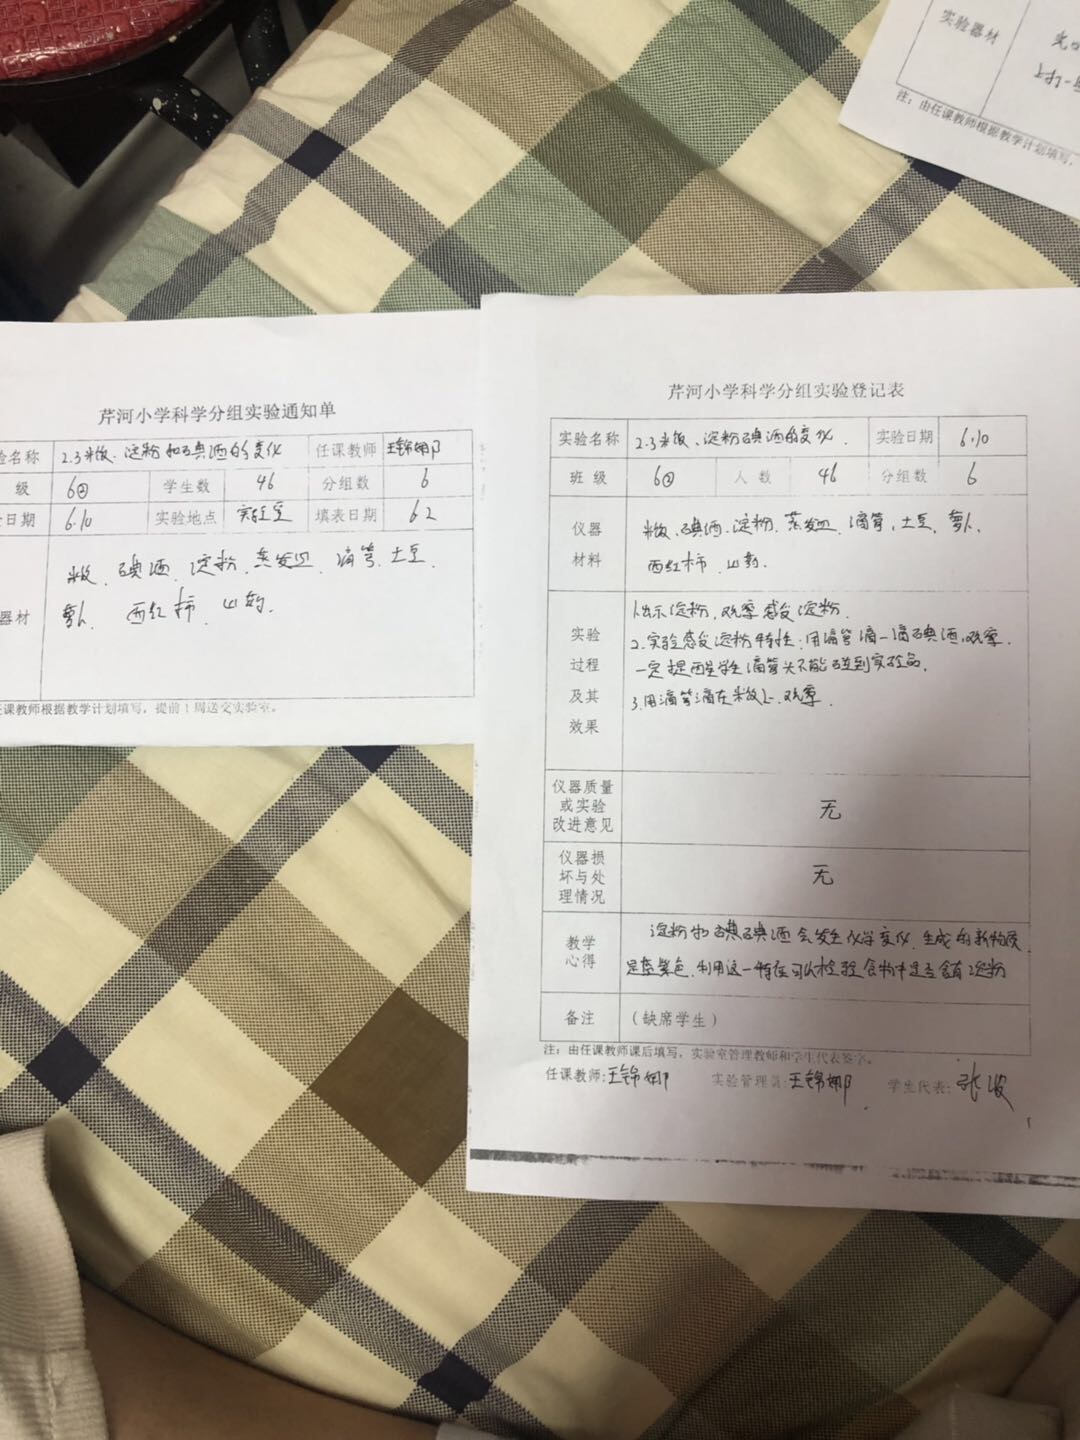 实验器材
光
注：由任课教师根据教学计划填写，
芹河小学科学分组实验通知单
验名称 2.3米饭、淀粉和碘酒的变化 任课教师 王锦娜
级 6② 学生数 46 分组数 6
日期 6.10 实验地点 实验室 填表日期 6.2
器材
米饭、碘酒、淀粉、蒸发皿、滴管、土豆、
萝卜、西红柿、山药.
任课教师根据教学计划填写，提前1周送交实验室。
芹河小学科学分组实验登记表
实验名称 2.3米饭、淀粉碘酒的变化. 实验日期 6.10
班级 6② 人数 46 分组数 6
仪器材料
米饭、碘酒、淀粉、蒸发皿、滴管、土豆、萝卜、
西红柿、山药.
实验过程及其效果
1.出示淀粉，观察感受淀粉.
2.实验感受淀粉特性：用滴管滴一滴碘酒，观察.
一定提醒学生滴管头不能碰到实验品.
3.用滴管滴在米饭上，观察.
仪器质量或实验改进意见 无
仪器损坏与处理情况 无
教学心得
淀粉和碘酒会发生化学变化，生成的新物质
是蓝紫色，利用这一特征可以检验食物中是否含有淀粉
备注 （缺席学生）
注：由任课教师课后填写，实验室管理教师和学生代表签字。
任课教师：王锦娜 实验管理员：王锦娜 学生代表：张